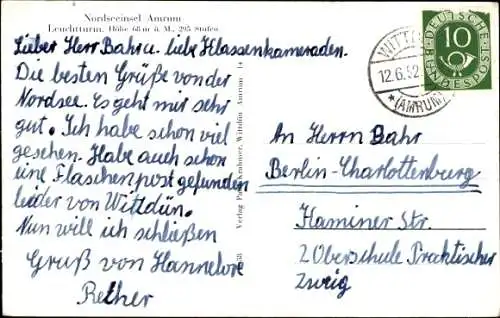 Nordseeinsel Amrum
Leuchtturm. Höhe 68 m ü. M., 295 Stufen
Lieber Herr Bahr u. liebe Klassenkameraden.
Die besten Grüße von der
Nordsee. Es geht mir sehr
gut. Ich habe schon viel
gesehen. Habe auch schon
eine Flaschenpost gefunden
leider von Wittdün.
Nun will ich schließen
Gruß von Hannelore
Rether
Verlag Krahmer, Wittdün Amrum
WITTDÜN
12.6.52
*(AMRUM)
DEUTSCHE
BUNDESPOST
10
An Herrn Bahr
Berlin-Charlottenburg
Kaminer Str.
2 Oberschule Praktischer
Zweig